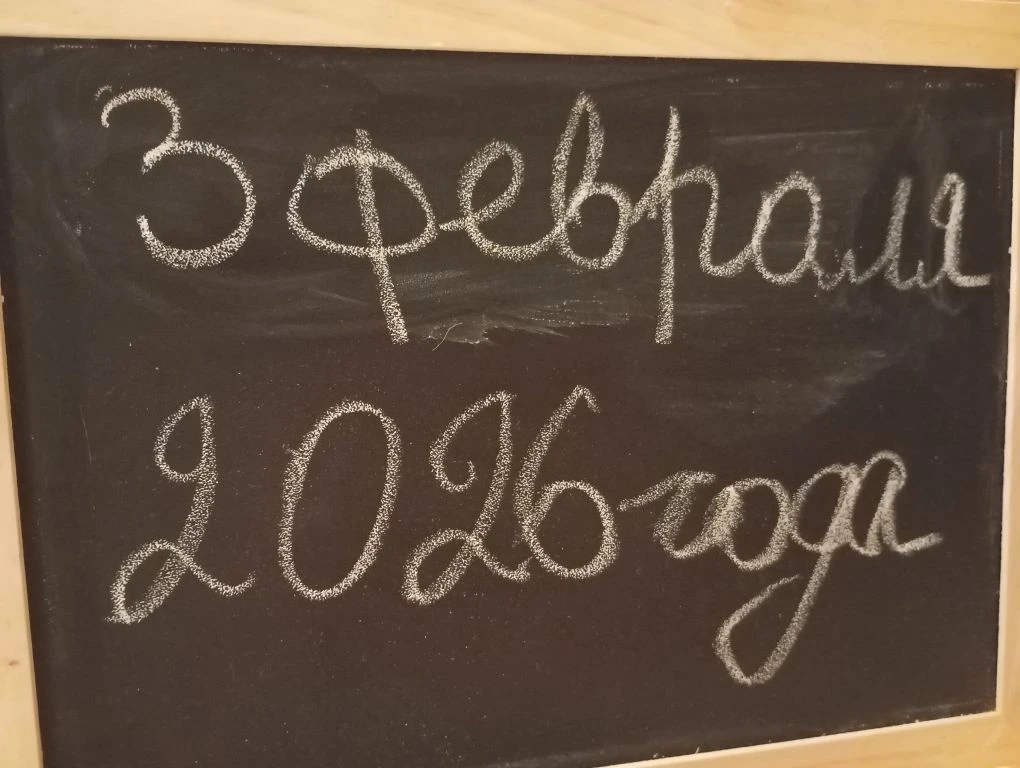 3 февраля
2026 года